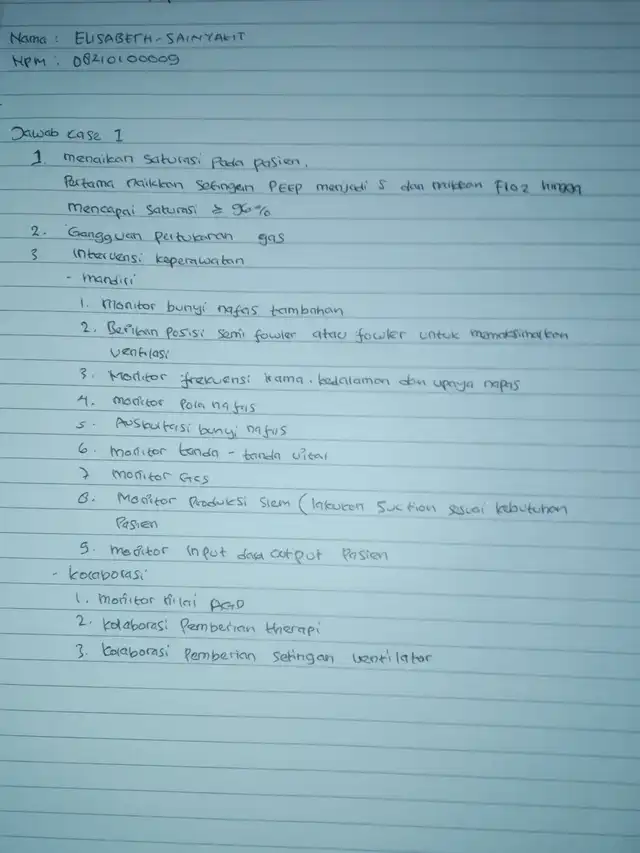 Nama : ELISABETH - SAINYAKIT
NPM : 08210100009
Jawab Case 1
1. menaikan saturasi pada pasien.
Pertama naikkan setingan PEEP menjadi 5 dan naikkan FIO2 hingga
mencapai saturasi ≥ 96%
2. Gangguan pertukaran gas
3 Intervensi keperawatan
- mandiri
1. Monitor bunyi nafas tambahan
2. Berikan posisi semi fowler atau fowler untuk memaksimalkan
ventilasi
3. Monitor frekuensi irama. kedalaman dan upaya napas
4. monitor pola nafas
5. Auskultasi bunyi nafas
6. monitor tanda - tanda vital
7 monitor GCS
8. Monitor Produksi slem (lakukan suction sesuai kebutuhan
Pasien
9. monitor input dan output Pasien
- kolaborasi
1. monitor nilai AGD
2. kolaborasi Pemberian therapi
3. kolaborasi Pemberian setingan ventilator